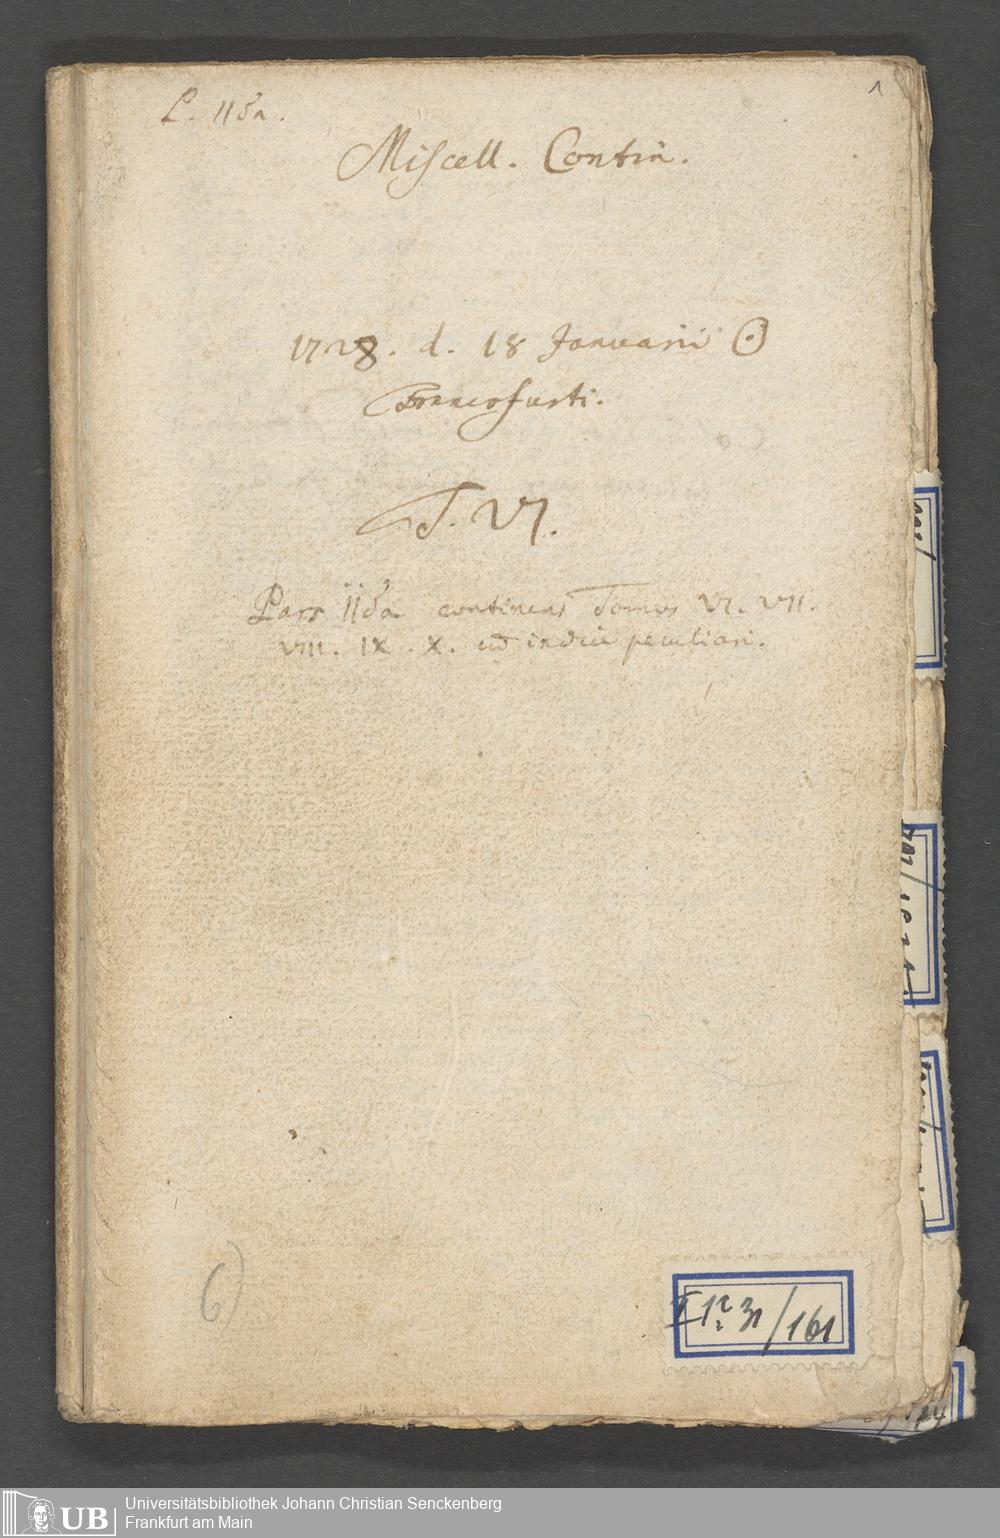 P. IIda.
1
Miscell. Contin.
1728. d. 18 Januarii ☉
Francofurti.
T. VI.
Pars IIda continens Tomos VI. VII.
VIII. IX. X. cū indice peculiari.
6)
/161
UB
Universitätsbibliothek Johann Christian Senckenberg
Frankfurt am Main